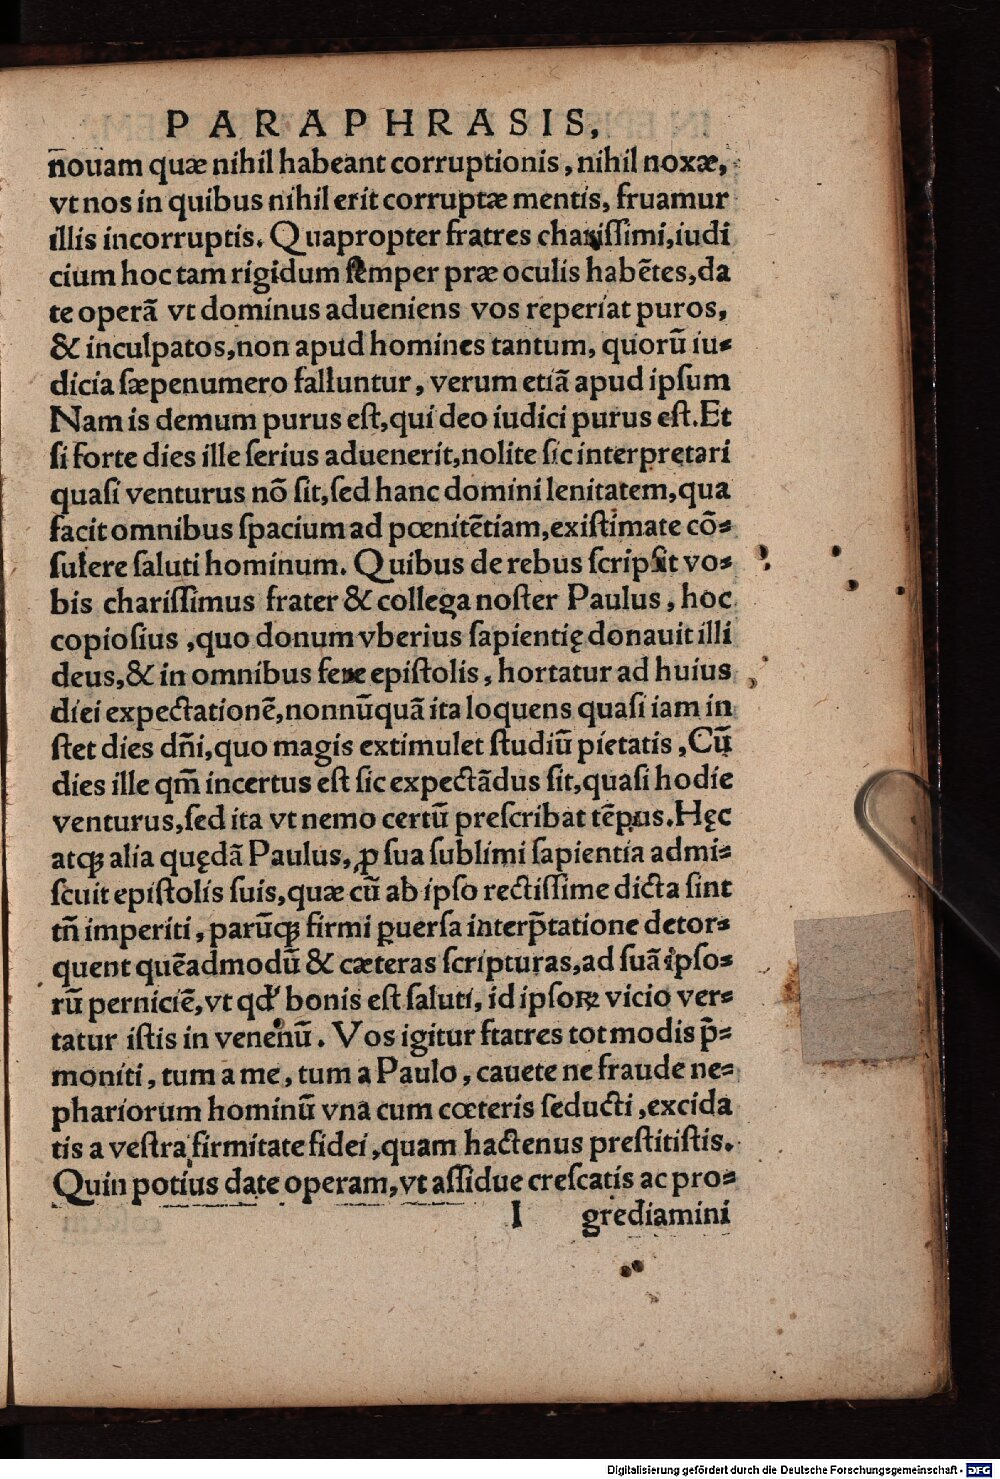 PARAPHRASIS.
nouam quæ nihil habeant corruptionis, nihil noxæ,
vt nos in quibus nihil erit corruptæ mentis, fruamur
illis incorruptis. Quapropter fratres charissimi, iudi
cium hoc tam rigidum semper præ oculis habẽtes, da
te operã vt dominus adueniens vos reperiat puros,
& inculpatos, non apud homines tantum, quorũ iu⸗
dicia sæpenumero falluntur, verum etiã apud ipsum
Nam is demum purus est, qui deo iudici purus est. Et
si forte dies ille serius aduenerit, nolite sic interpretari
quasi venturus nõ sit, sed hanc domini lenitatem, qua
facit omnibus spacium ad pœnitẽtiam, existimate cõ⸗
sulere saluti hominum. Quibus de rebus scripsit vo⸗
bis charissimus frater & collega noster Paulus, hoc
copiosius, quo donum vberius sapientię donauit illi
deus, & in omnibus fere epistolis, hortatur ad huius
diei expectationẽ, nonnũquã ita loquens quasi iam in
stet dies dñi, quo magis extimulet studiũ pietatis, Cũ
dies ille qm̃ incertus est sic expectãdus sit, quasi hodie
venturus, sed ita vt nemo certũ prescribat tẽpus. Hęc
atqꝫ alia quędã Paulus, ꝓ sua sublimi sapientia admi⸗
scuit epistolis suis, quæ cũ ab ipso rectissime dicta sint
tñ imperiti, parũqꝫ firmi ꝑuersa interp̃tatione detor⸗
quent quẽadmodũ & cæteras scripturas, ad suã ipso⸗
rũ perniciẽ, vt qđ bonis est saluti, id ipsoꝝ vicio ver⸗
tatur istis in venenũ. Vos igitur ftatres tot modis p̃⸗
moniti, tum a me, tum a Paulo, cauete ne fraude ne⸗
phariorum hominũ vna cum cœteris seducti, excida
tis a vestra firmitate fidei, quam hactenus prestitistis.
Quin potius date operam, vt assidue crescatis ac pro⸗
I grediamini
Digitalisierung gefördert durch die Deutsche Forschungsgemeinschaft - DFG